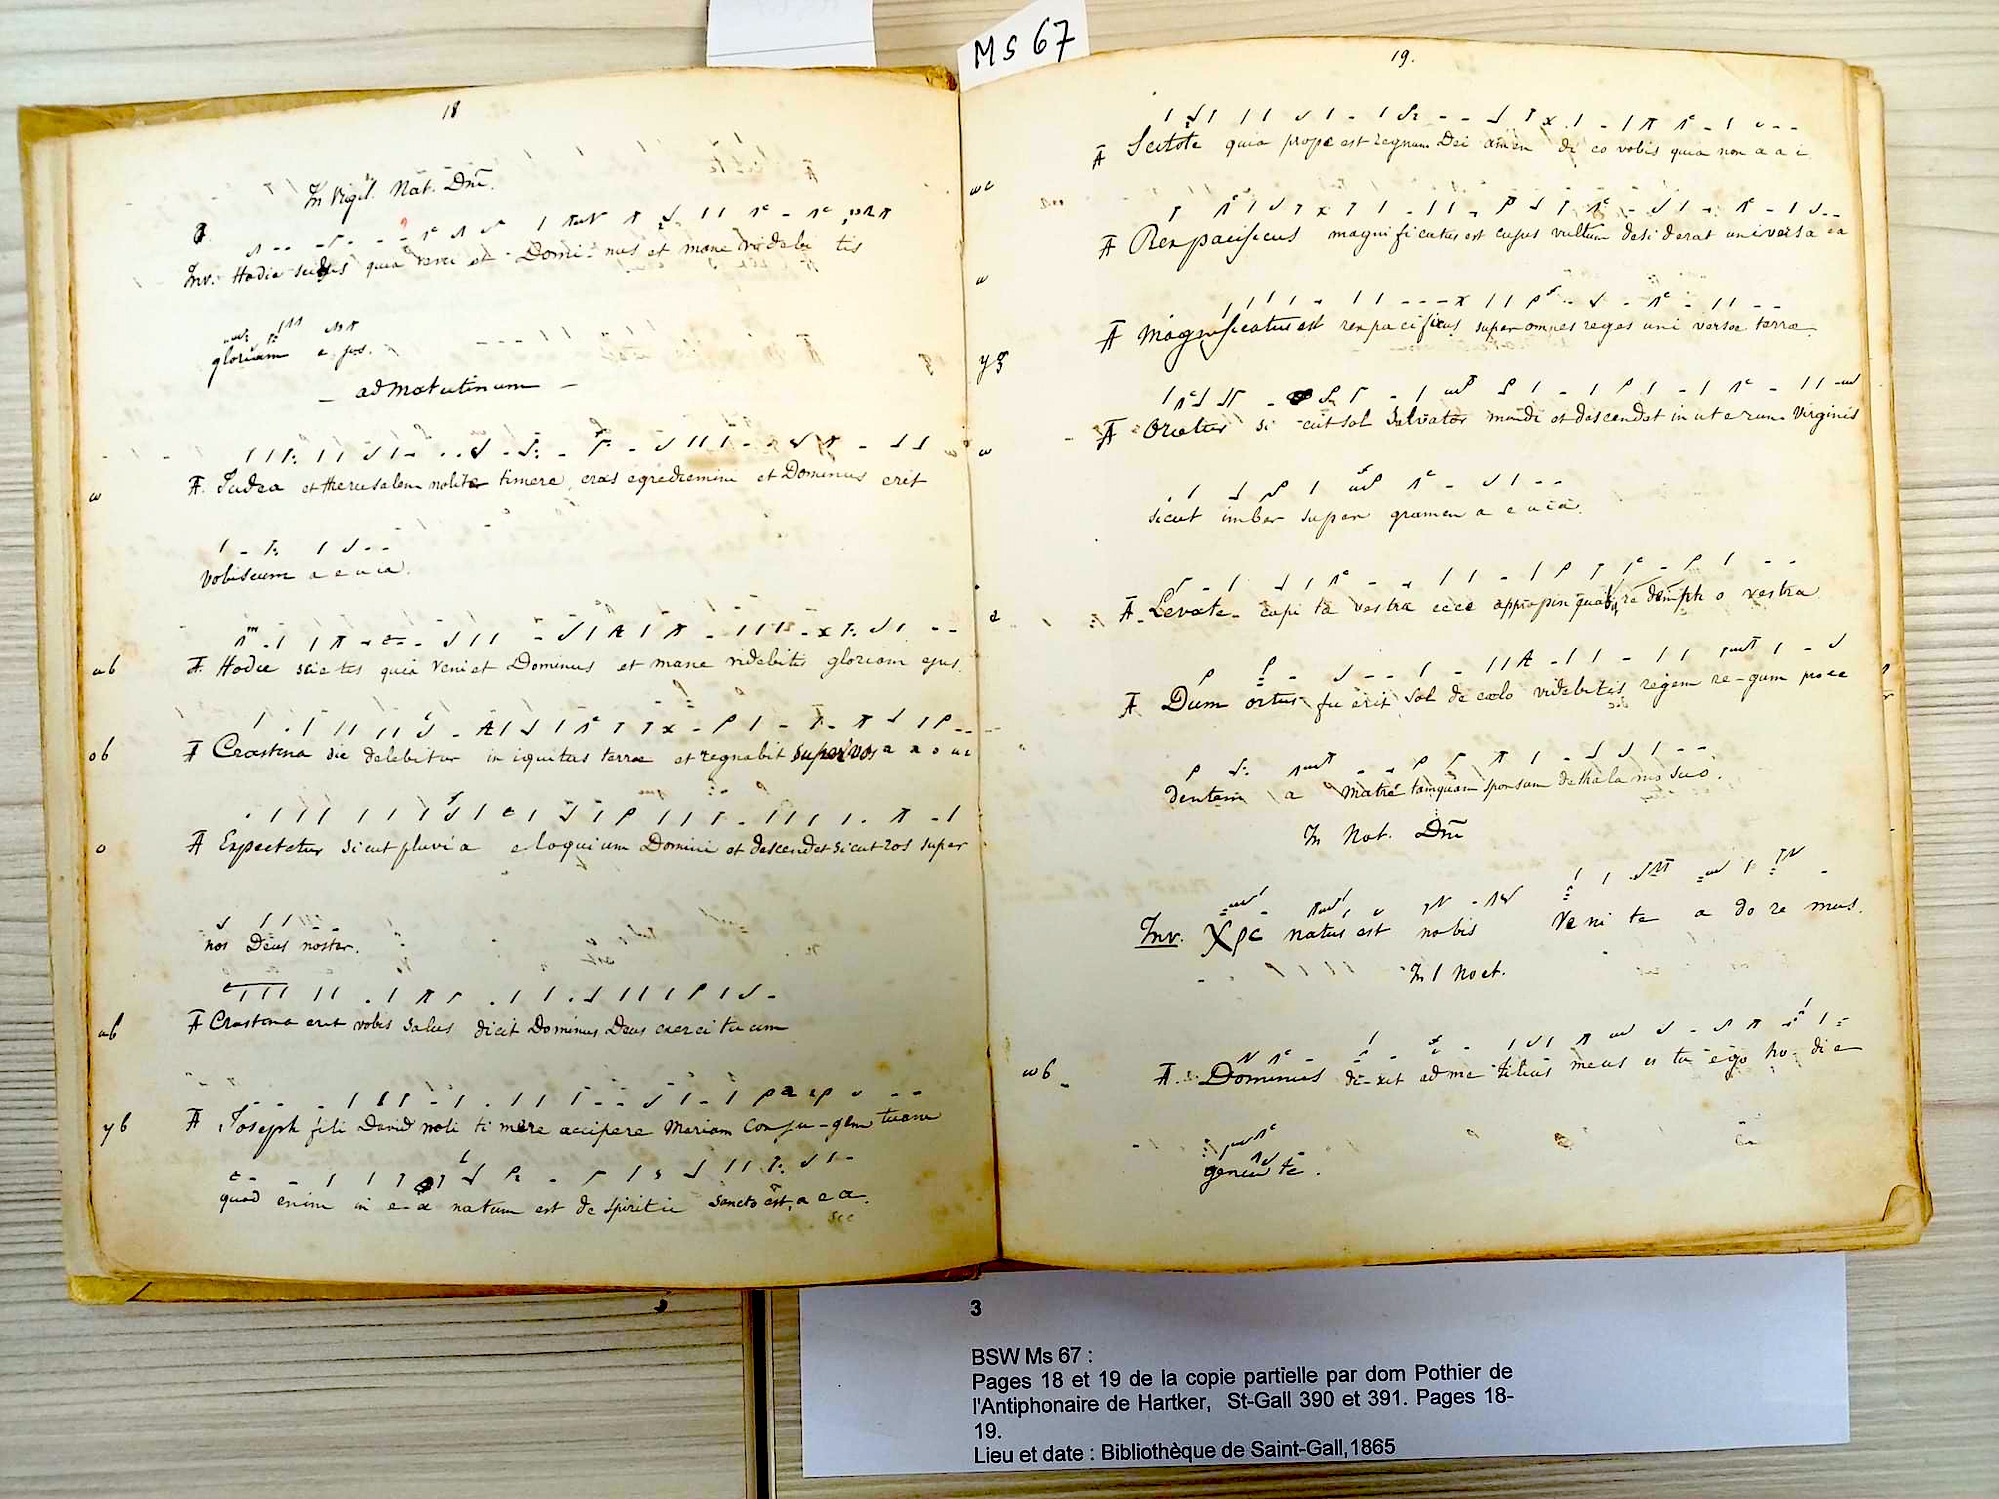 MS 67
18
In Vigil. Nat. Dni.
Inv. Hodie scietis quia veni et Domi nus et mane videbi tis
gloriam e jus.
– ad Matutinum –
w Ā. Judea et Jherusalem nolite timere, cras egrediemini et Dominus erit
vobiscum a e u ia.
ab Ā. Hodie scie tes quia veniet Dominus et mane videbitis gloriam ejus.
ob Ā Crastina die delebitur in iquitas terrae et regnabit super vos a
o Ā Expectetur sicut pluvi a eloquium Domini et descendet sicut ros super
nos Deus noster.
ab Ā Crastina erit vobis salus dicit Dominus Deus exerci tu um
yb Ā Joseph fili David noli ti mere accipere Mariam Con ju-gem tuam
quod enim in e-a natum est de spiritu sancto est, a e a.
19.
Ā Scitote quia prope est regnum Dei amen di co vobis quia non
w Ā Rex pacificus magni ficatus est cujus vultum desi derat universa
Ā Magnificatus est rex pacificus super omnes reges uni versae terrae
w Ā Orietur si cut sol Salvator mundi et descendet in ut e rum Virginis
sicut imber super gramen a e u ia.
Ā. Levate capi ta vestra ecce appropin quabit re demptio vestra
Ā Dum ortus fu erit sol de caelo videbitis regem re-gum proce
dentem a Matre tamquam sponsum de thala mo suo.
In Nat. Dni
Inv. Xpc natus est nobis Ve ni te a do re mus.
In I Noct.
wb Ā. Dominus di-xit ad me filius meus es tu ego ho die
genui te.
3
BSW Ms 67 :
Pages 18 et 19 de la copie partielle par dom Pothier de
l'Antiphonaire de Hartker, St-Gall 390 et 391. Pages 18-
19.
Lieu et date : Bibliothèque de Saint-Gall,1865